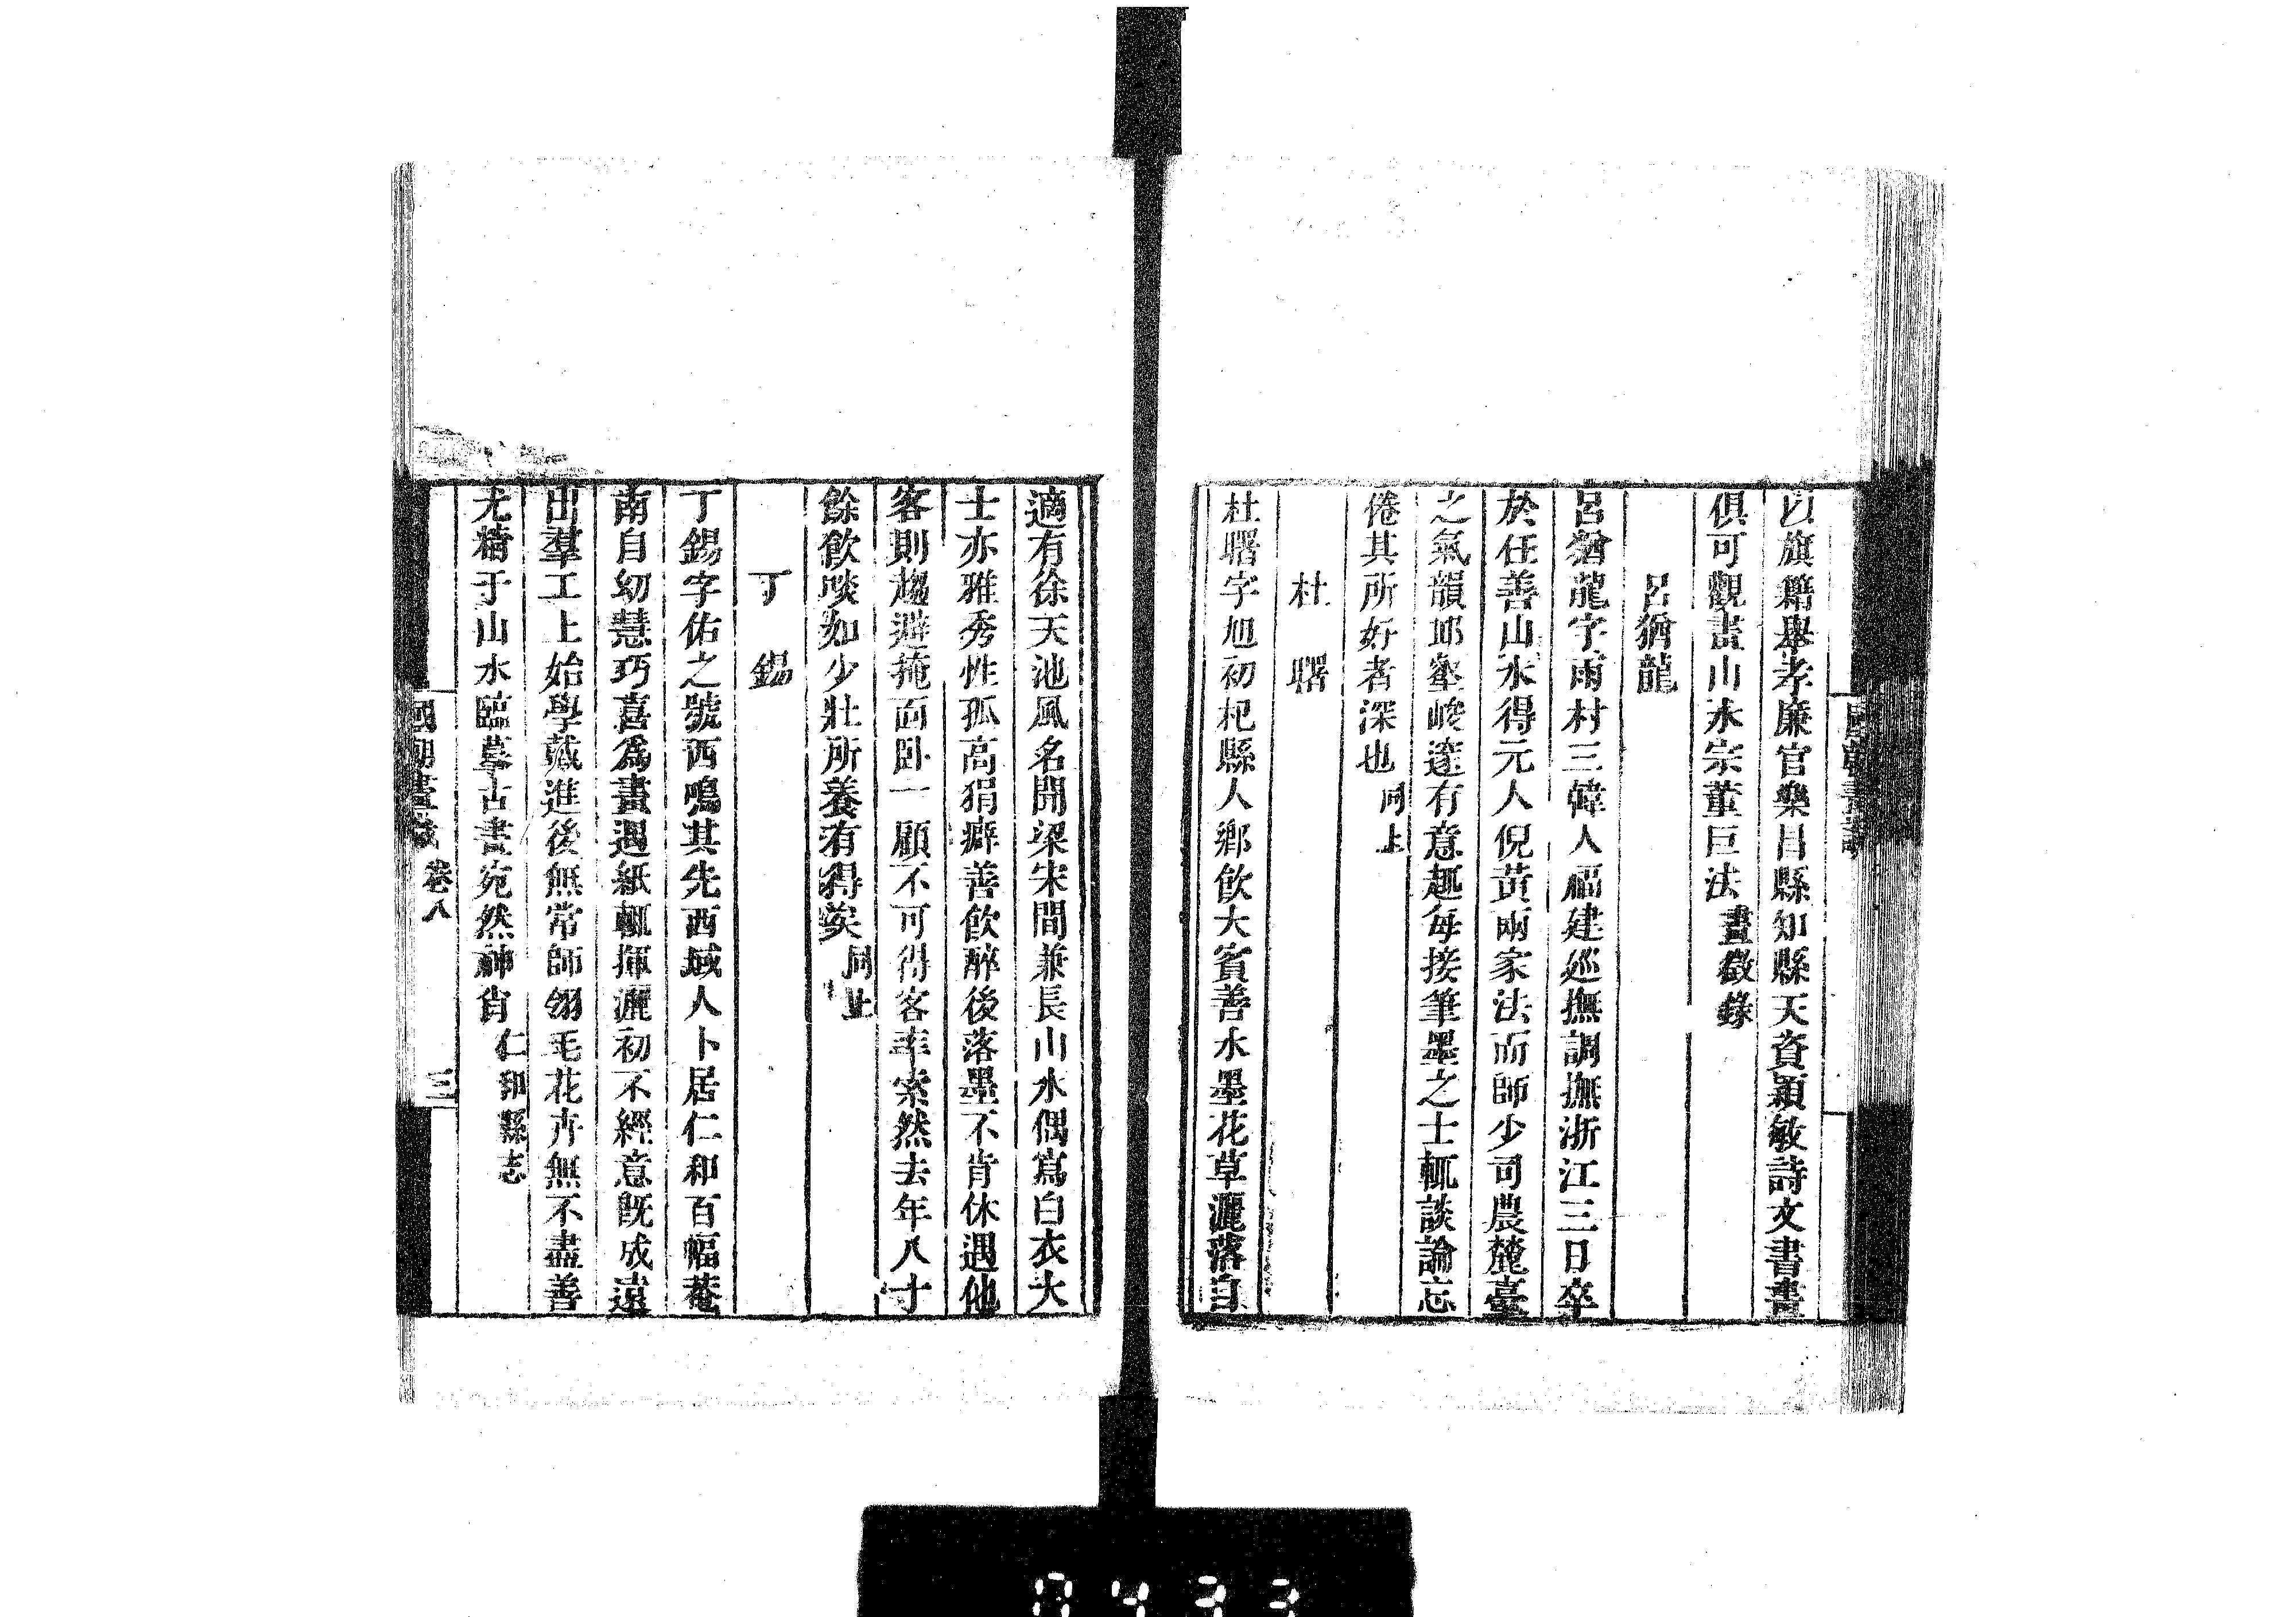 以旗籍舉孝廉官樂昌縣知縣天資穎敏詩文書畫
俱可觀畫山水宗董巨法畫徵錄
呂猶龍
呂猶龍字雨村三韓人福建巡撫調撫浙江三日卒
於任善山水得元人倪黃兩家法而師少司農麓臺
之氣韻邱壑峻邃有意趣每接筆墨之士輒談論忘
倦其所好者深也同上
杜曙
杜曙字旭初杞縣人鄉飲大賓善水墨花草灑落自
適有徐天池風名開梁宋間兼長山水偶寫白衣大
士亦雅秀性孤高狷癖善飲醉後落墨不肯休遇他
客則趨避掩面卧一顧不可得客率索然去年八十
餘飲啖如少壯所養有得矣同上
丁錫
丁錫字佑之號西鳴其先西域人卜居仁和百幅菴
南自幼慧巧喜爲畫遇紙輒揮灑初不經意既成遠
出羣工上始學戴進後無常師翎毛花卉無不盡善
尤精于山水臨摹古畫宛然神肖仁和縣志
國朝畫識 卷八 三